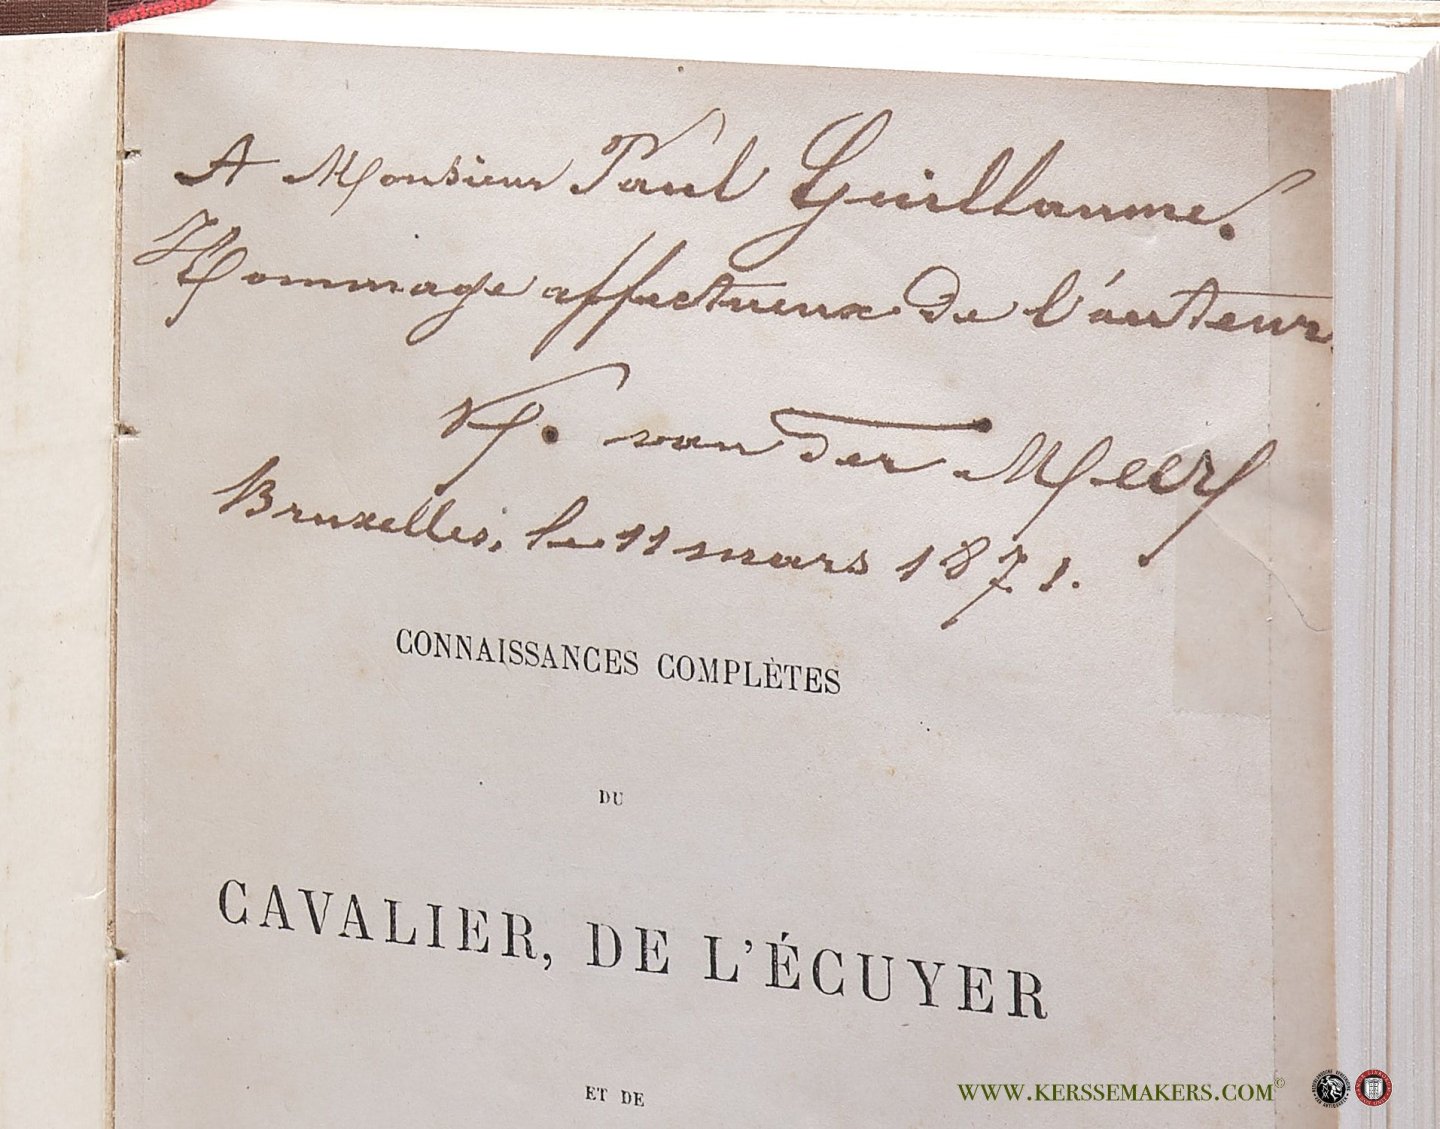 A Monsieur Paul Guillaume.
Hommage affectueux de l'auteur.
van der Meere
Bruxelles, le 11 mars 1871.
CONNAISSANCES COMPLÈTES
DU
CAVALIER, DE L'ÉCUYER
ET DE
WWW.KERSSEMAKERS.COM©